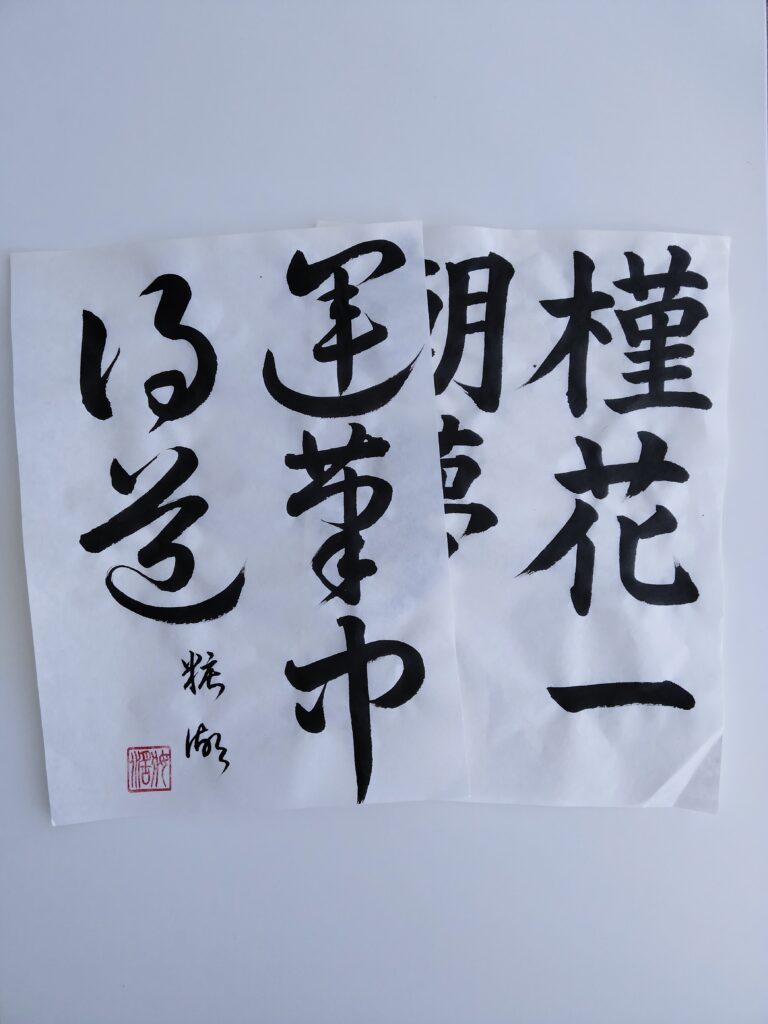 槿花一
朝夢
運筆中
得道